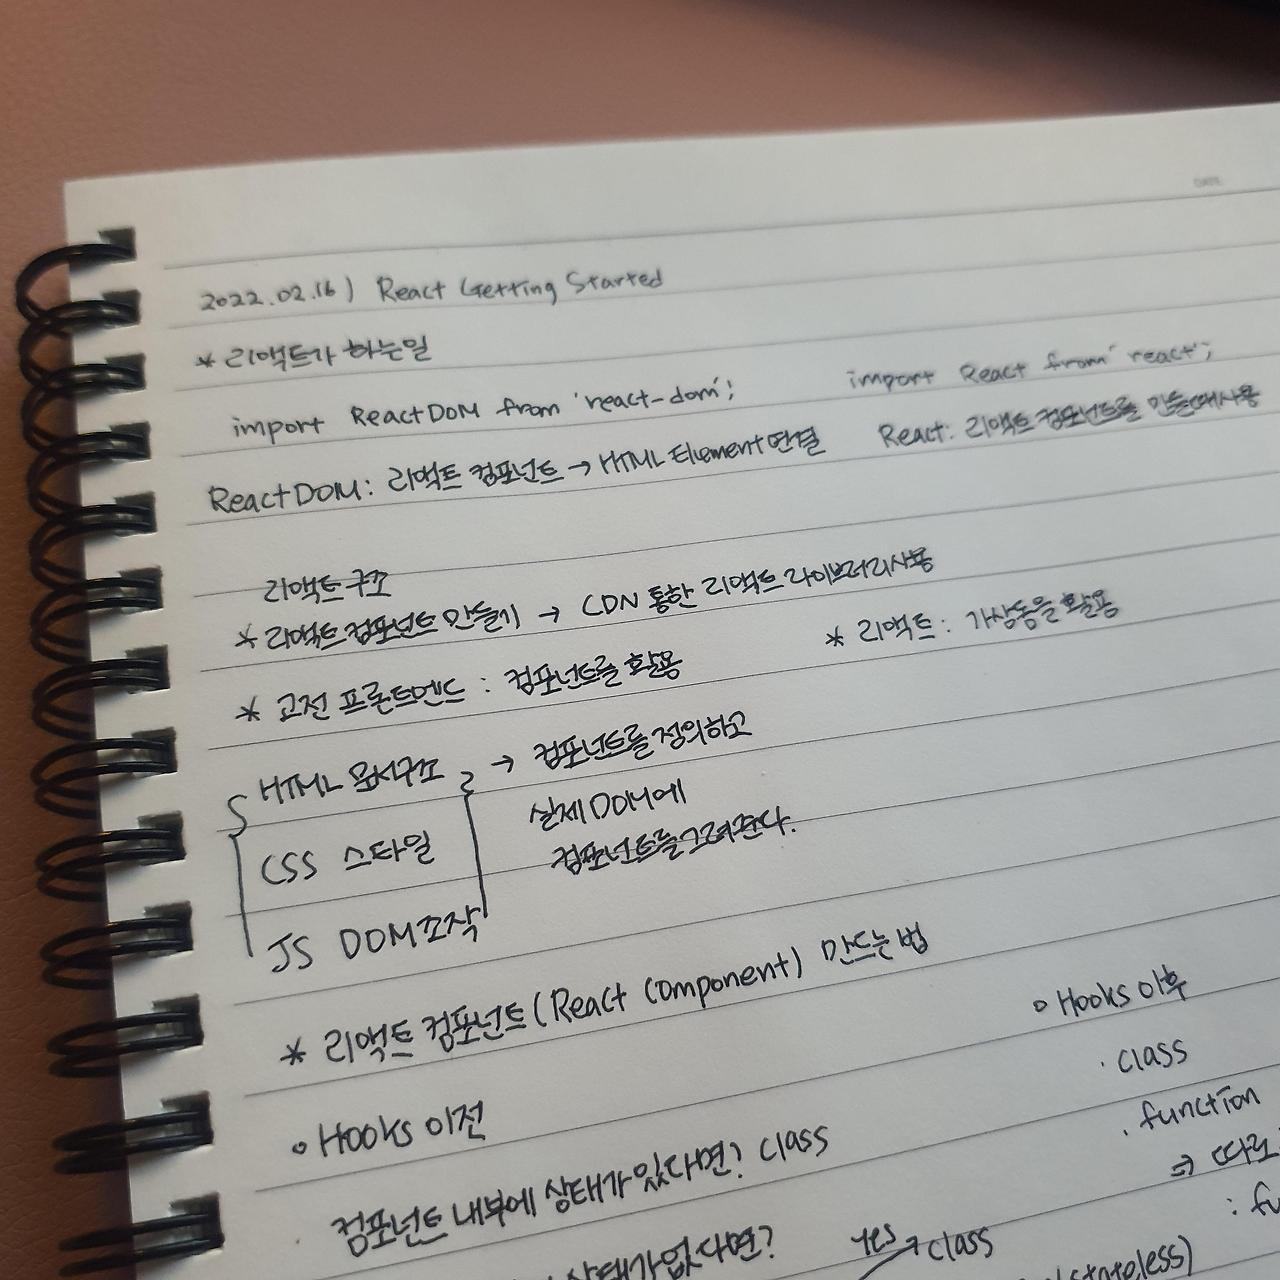 DATE
2022.02.16) React Getting Started
* 리액트가 하는일
import ReactDOM from 'react-dom'; import React from 'react';
ReactDOM: 리액트 컴포넌트 → HTML Element 연결 React: 리액트 컴포넌트를 만들때 사용
리액트 구조
* 리액트 컴포넌트 만들기 → CDN 통한 리액트 라이브러리 사용
* 고전 프론트엔드 : 컴포넌트를 활용 * 리액트 : 가상돔을 활용
HTML 문서구조 → 컴포넌트를 정의하고
CSS 스타일 실제 DOM에
컴포넌트를 그려준다.
JS DOM 조작
* 리액트 컴포넌트 (React Component) 만드는 법
Hooks 이전 Hooks 이후
· class
컴포넌트 내부에 상태가 있다면? class . function
⇒ 따로
상태가 없다면? yes → class : fu
stateless)